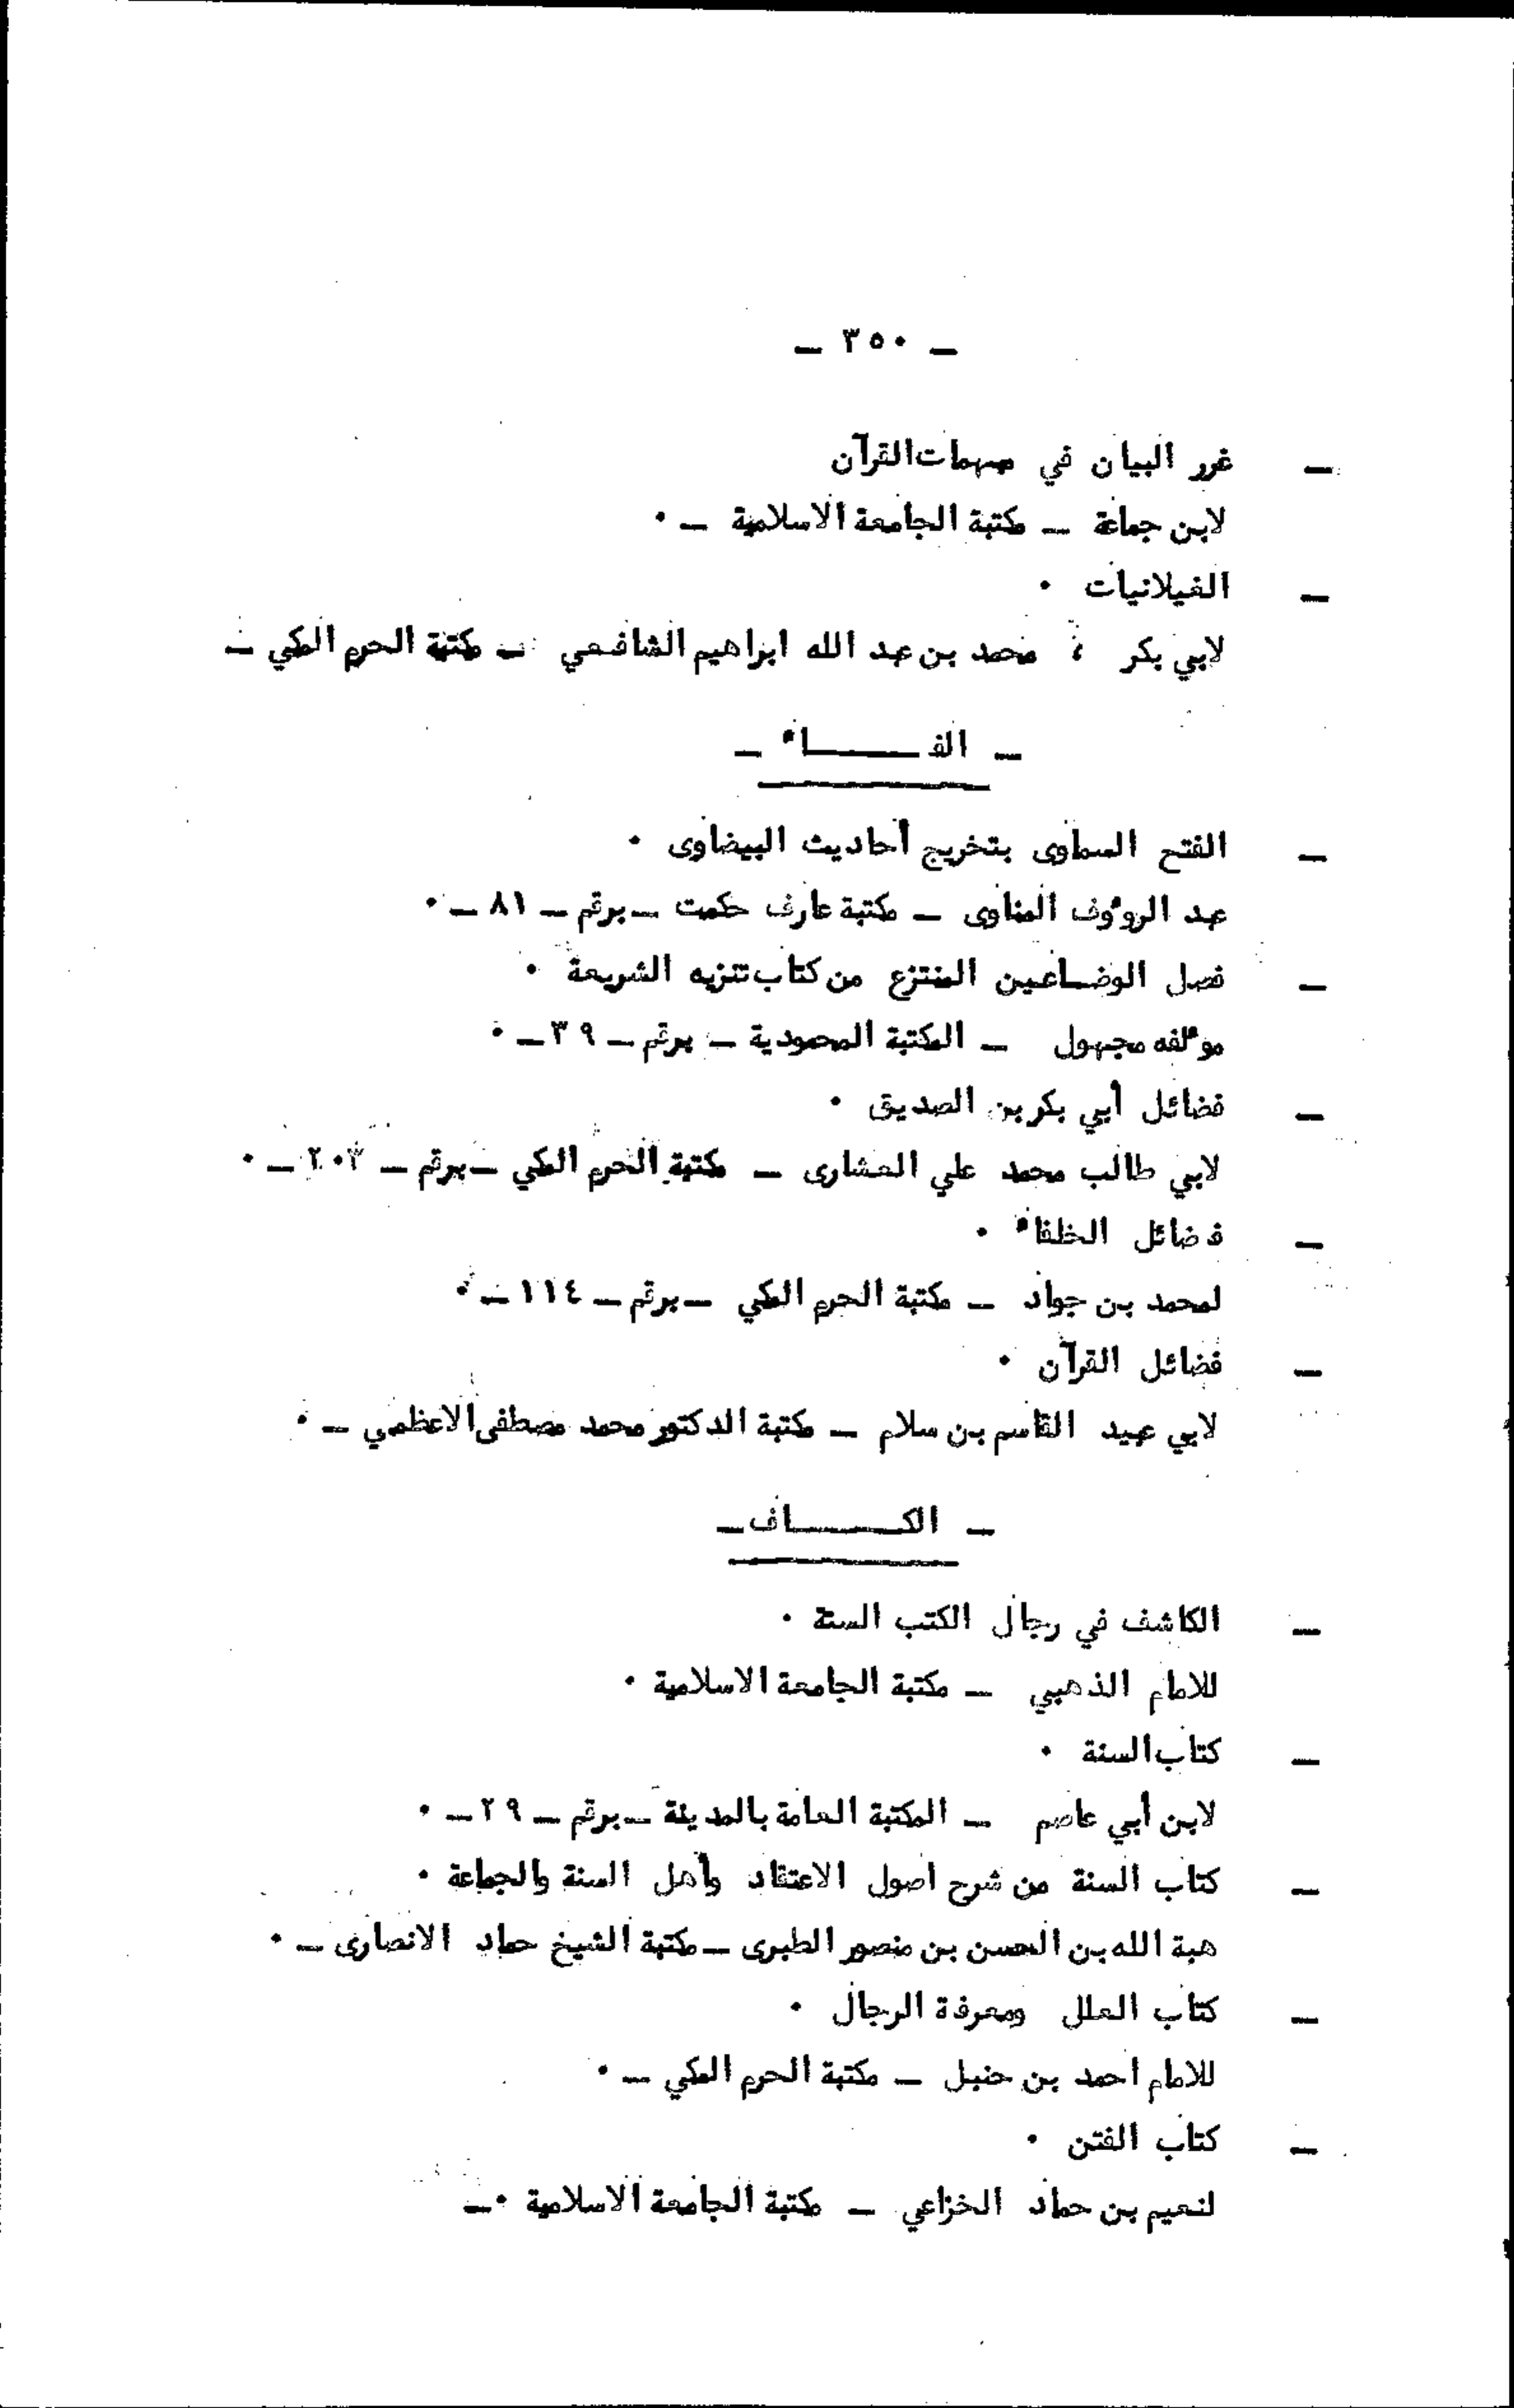 — ٣٥٠ —
— غرر البيان في مبهمات القرآن
لابن جماعة — مكتبة الجامعة الاسلامية — .
— الغيلانيات .
لابي بكر ، محمد بن عبد الله ابراهيم الشافعي — مكتبة الحرم المكي —
— الفـــــاء —
— الفتح السماوى بتخريج أحاديث البيضاوى .
عبد الروؤف المناوى — مكتبة عارف حكمت — برقم — ٨١ — .
— فصل الوضاعين المنتزع من كتاب تنزيه الشريعة .
موءلفه مجهول — المكتبة المحمودية — برقم — ٣٩ — .
— فضائل أبي بكر بن الصديق .
لابي طالب محمد علي العشارى — مكتبة الحرم المكي — برقم — ٢٠٣ — .
— فضائل الخلفاء .
لمحمد بن جواد — مكتبة الحرم المكي — برقم — ١١٤ — .
— فضائل القرآن .
لابي عبيد القاسم بن سلام — مكتبة الدكتور محمد مصطفى الاعظمي — .
— الكـــــاف —
— الكاشف في رجال الكتب الستة .
للامام الذهبي — مكتبة الجامعة الاسلامية .
— كتاب السنة .
لابن أبي عاصم — المكتبة العامة بالمدينة — برقم — ٢٩ — .
— كتاب السنة من شرح اصول الاعتقاد وأهل السنة والجماعة .
هبة الله بن الحسن بن منصور الطبرى — مكتبة الشيخ حماد الانصارى — .
— كتاب العلل ومعرفة الرجال .
للامام احمد بن حنبل — مكتبة الحرم المكي — .
— كتاب الفتن .
لنعيم بن حماد الخزاعي — مكتبة الجامعة الاسلامية . —